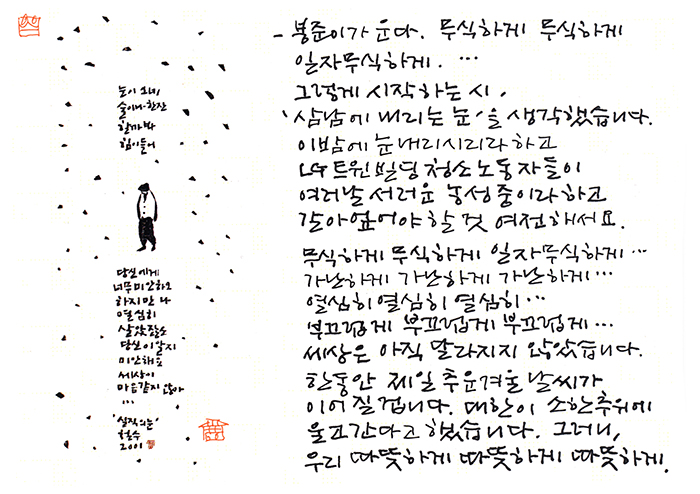 눈이 오네,
술이나 한잔
할까봐
힘이들어
당신에게
너무 미안하오
하지만 나
열심히
살았잖소
당신이 알지
미안해요
세상이
마음같지 않아
...
'실직의 눈'
철수
2001
- 봉준이가 운다. 무식하게 무식하게
일자무식하게. ...
그렇게 시작하는 시,
'삼남에 내리는 눈'을 생각했습니다.
이밤에 눈내리시리라 하고
LG트윈빌딩 청소노동자들이
여러날 서러운 농성중이라 하고
갈아엎어야 할 것 여전해서요.
무식하게 무식하게 일자무식하게...
가난하게 가난하게 가난하게...
열심히 열심히 열심히...
부끄럽게 부끄럽게 부끄럽게...
세상은 아직 달라지지 않았습니다.
한동안 제일 추운겨울 날씨가
이어질겁니다. 대한이 소한추위에
울고간다고 했습니다. 그러니,
우리 따뜻하게 따뜻하게 따뜻하게.